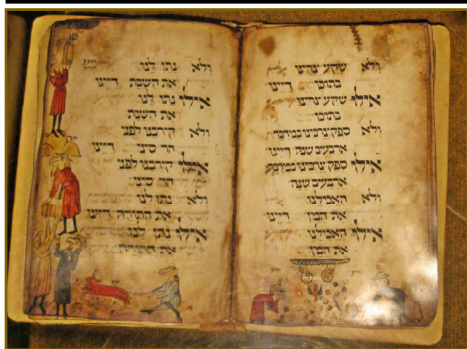 ולא שקע צרינו
בתוכו דיינו
אילו שקע צרינו
בתוכו
ולא ספק צרכינו במידבר
ארבעים שנה דיינו
אילו ספק צרכינו במידבר
ארבעים שנה
ולא האכילנו
את המן דיינו
אילו האכילנו
את המן
ולא נתן לנו
את השבת דיינו
אילו נתן לנו
את השבת
ולא קירבנו לפני
הר סיני דיינו
אילו קירבנו לפני
הר סיני
ולא נתן לנו
את התורה דיינו
אילו נתן לנו
את התורה